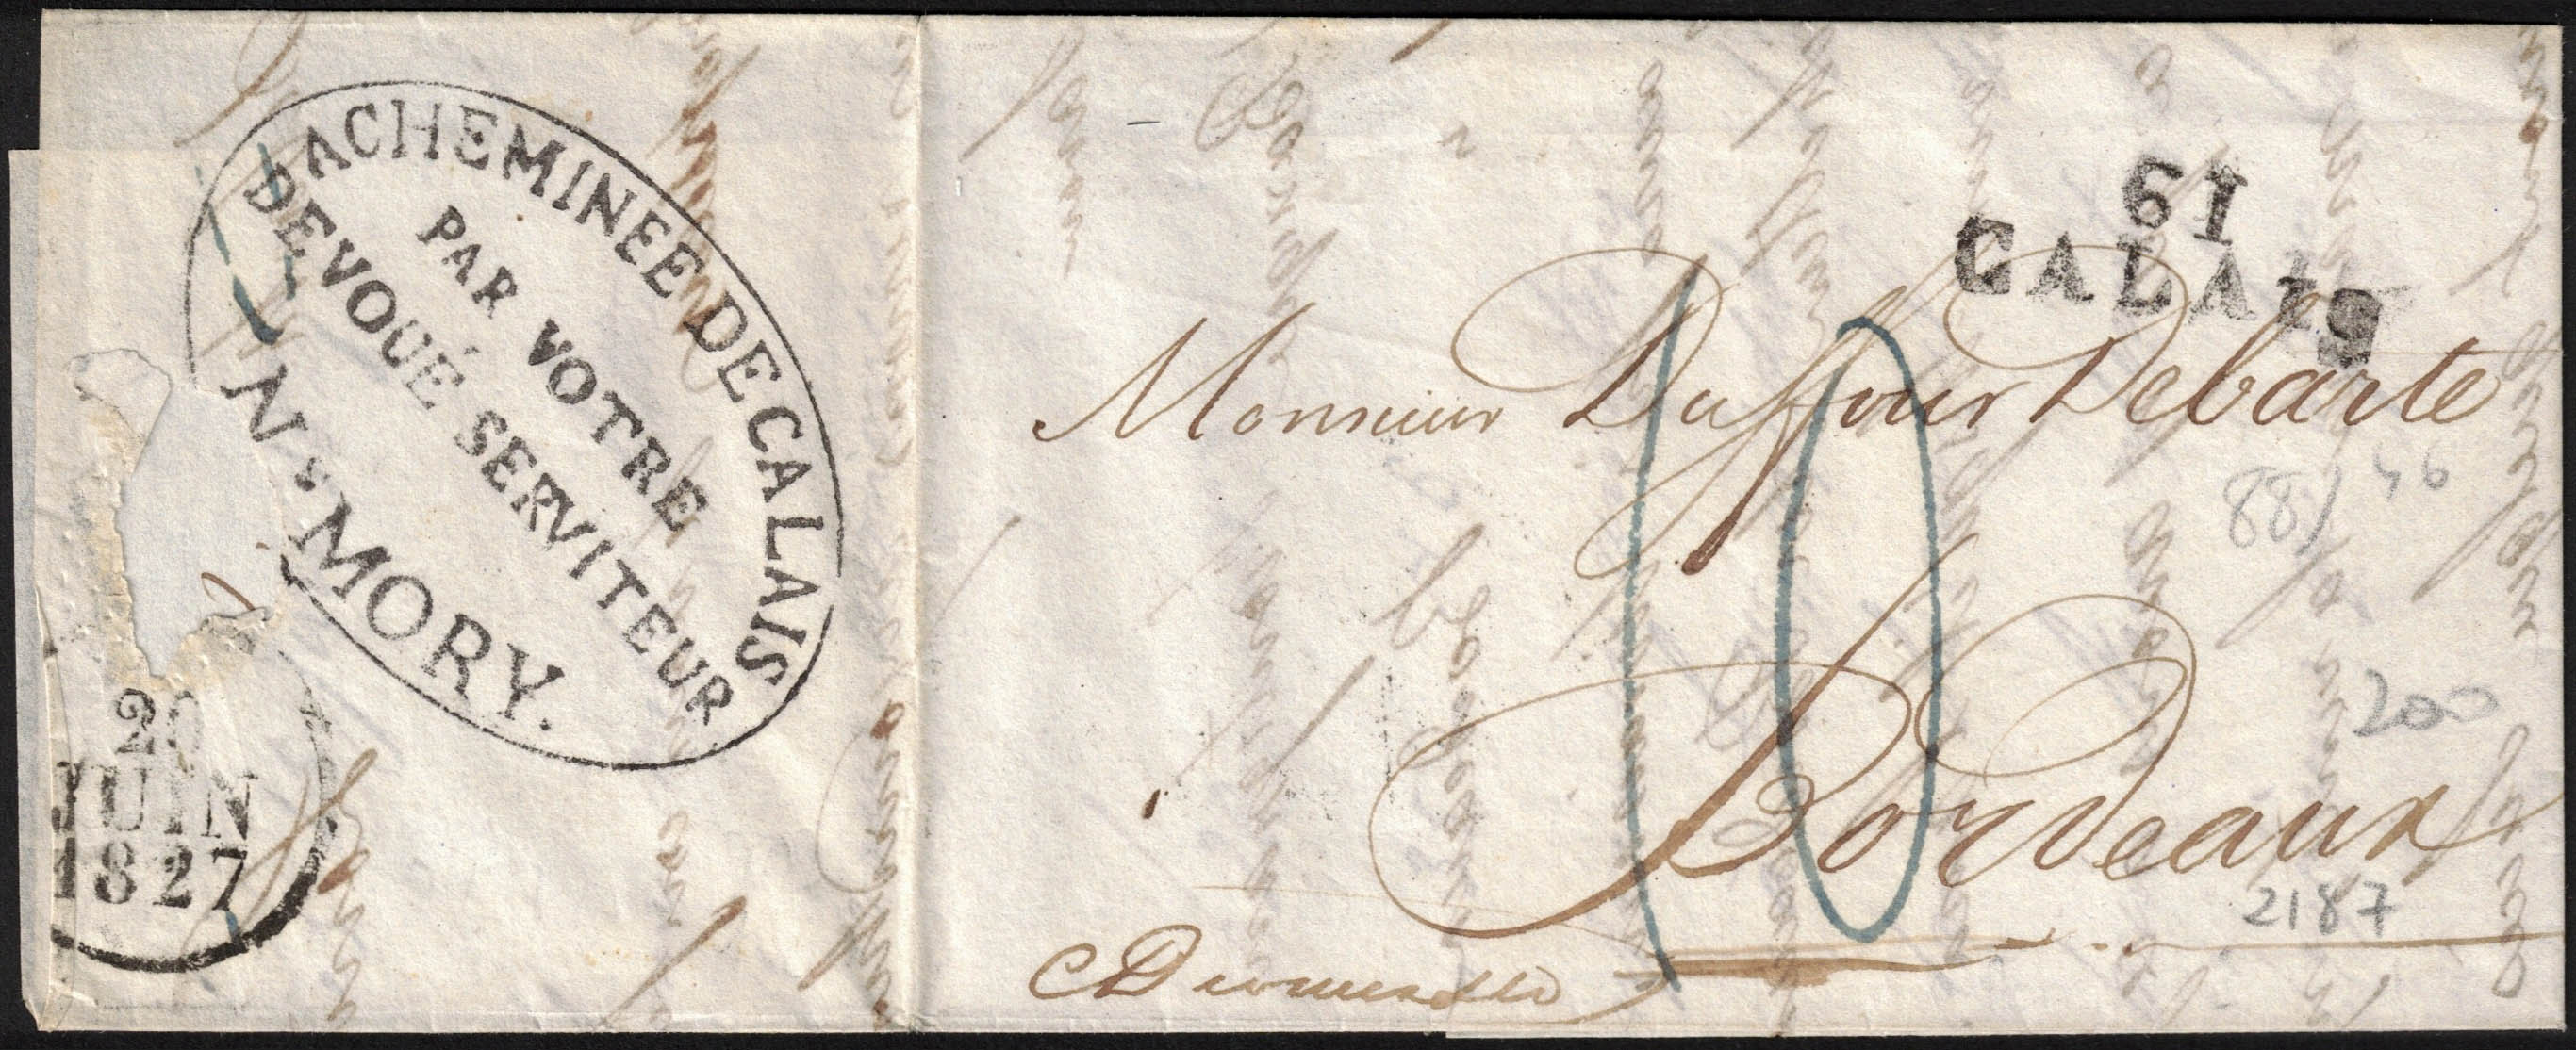 ACHEMINEE DE CALAIS
PAR VOTRE
DEVOUÉ SERVITEUR
N MORY.
20
JUIN
1827
61
CALAIS
Monsieur Duffour Debarte
10
88/46
Bordeaux
200
2187